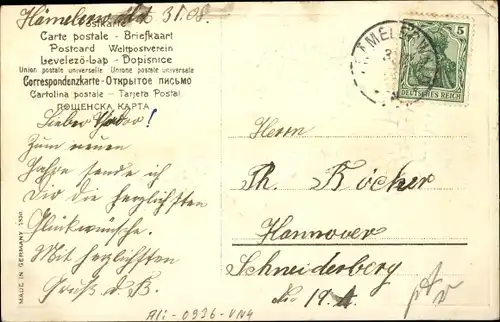 Hämelerwald 31.08.
Postkarte
Carte postale - Briefkaart
Postcard Weltpostverein
Levelező-Lap - Dopisnice
Union postale universelle Unione postale universale
Correspondenzkarte - Открытое письмо
Cartolina postale - Tarjeta Postal
ПОЩЕНСКА КАРТА
5
DEUTSCHES REICH
HÄMELERWALD
Lieber !
Zum neuen
Jahre sende ich
Dir die herzlichsten
Glückwünsche.
Mit herzlichsten
Gruß d. B.
Herrn
Th. Böcher
Hannover
Schneiderberg
No 19.
MADE IN GERMANY
Ali-0936-VN4